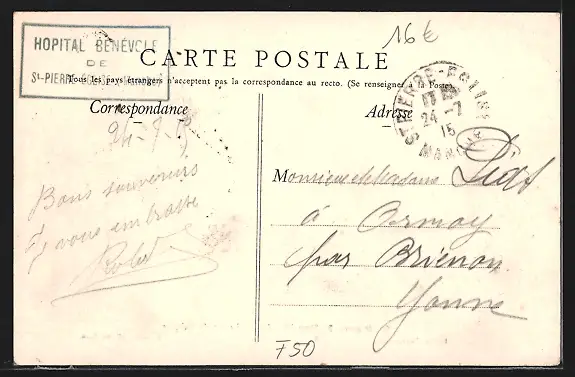 16€
HOPITAL BÉNÉVOLE
DE
St-PIERRE-EGLISE
CARTE POSTALE
Tous les pays étrangers n'acceptent pas la correspondance au recto. (Se renseigner à la Poste).
Correspondance
Adresse
ST PIERRE-EGLISE
24 -7
15
MANCHE
24-7-15
Monsieur et Madame Piat
Bons souvenirs
à Ormoy
Je vous embrasse
par Brienon
Robert
Yonne
F50